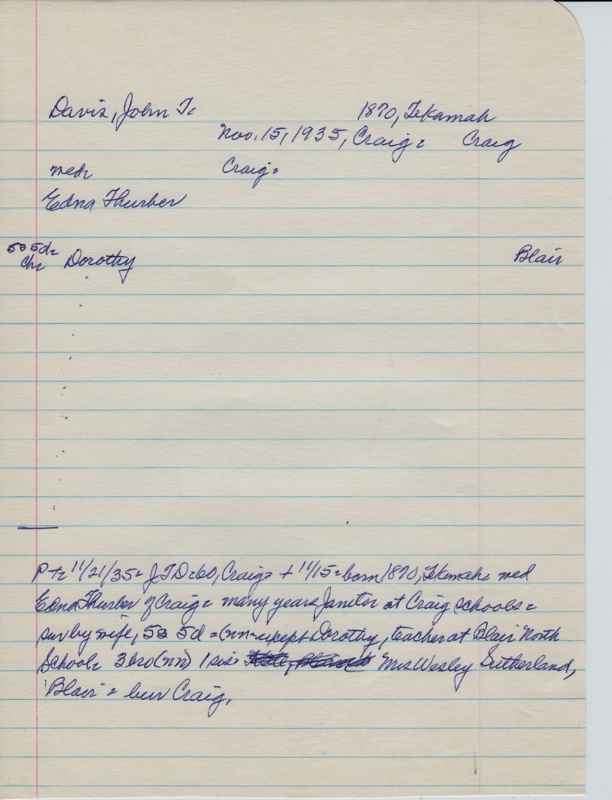 Davis, John T. 1870, Tekamah
Nov. 15, 1935, Craig= Craig
med= Craig=
Edna Thurber
5s 5d=
ch= Dorothy Blair
P t= 11/21/35= JTD=60, Craig= + 11/15=born 1870, Tekamah= med
Edna Thurber of Craig= many years Janitor at Craig schools=
sur by wife, 5s 5d =(nn-except Dorothy, teacher at Blair North
School= 3 bro(nn) 1 sis= Mrs Wesley Sutherland,
'Blair'= bur Craig.